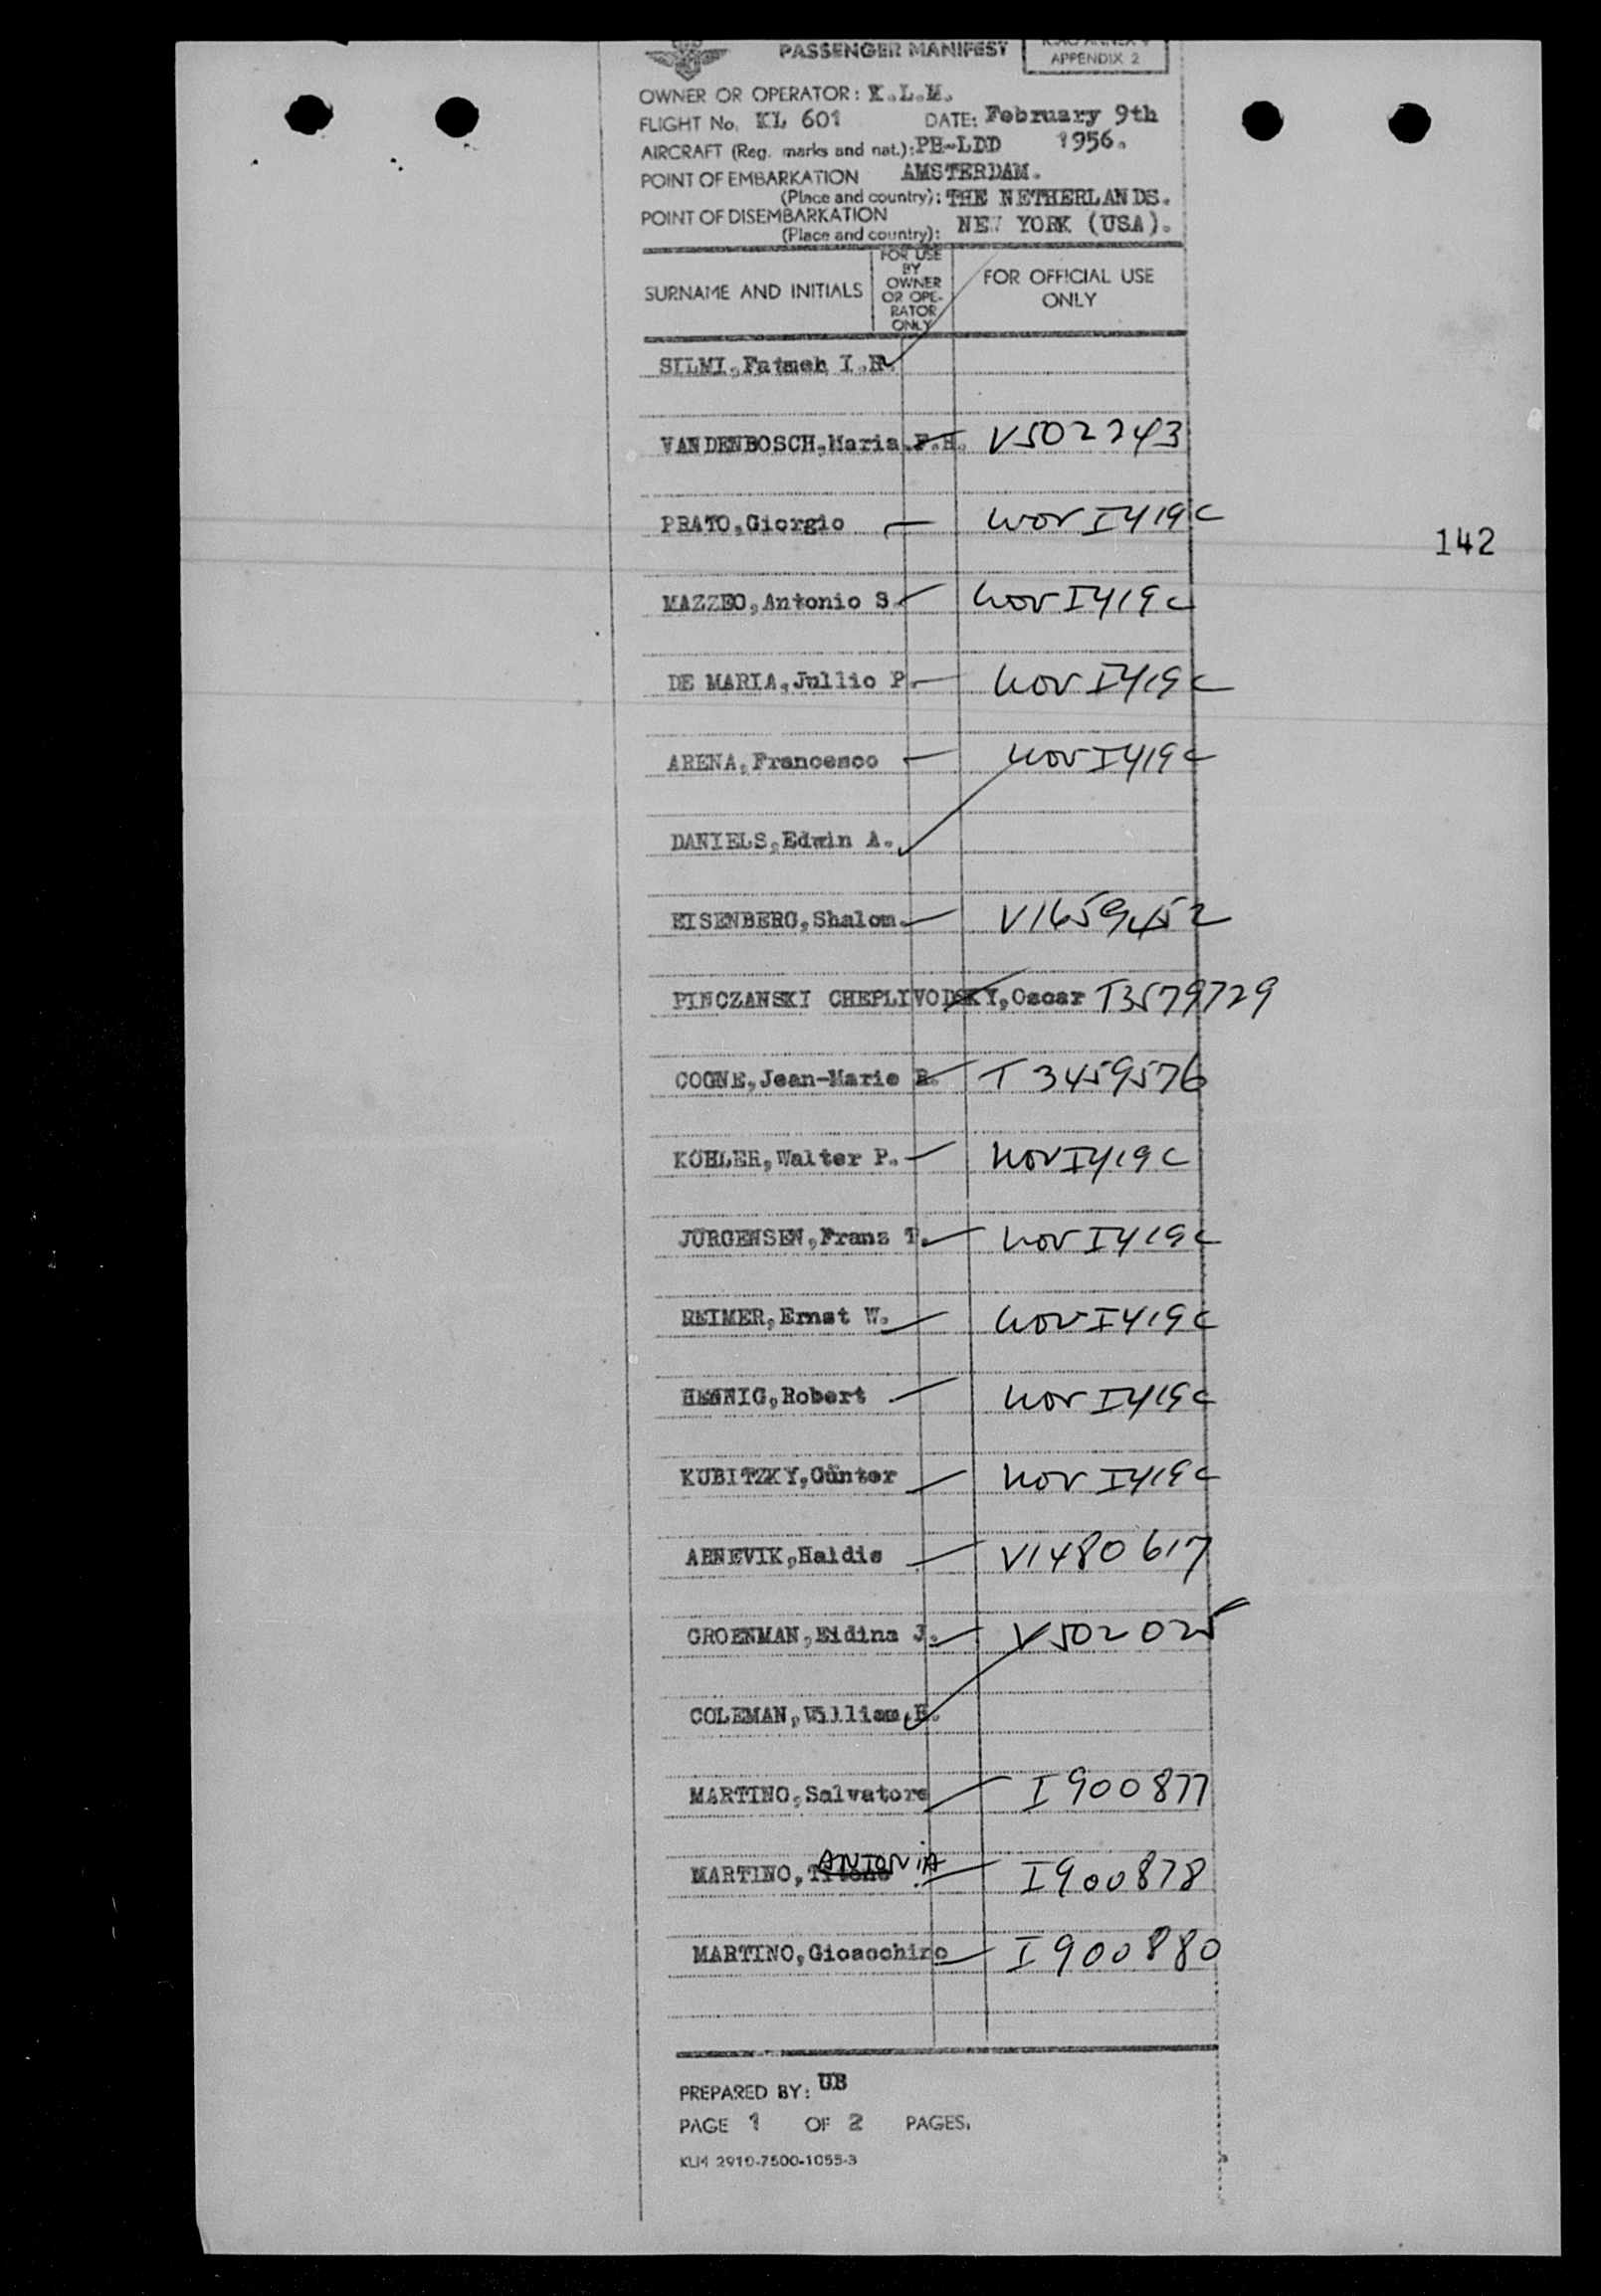 PASSENGER MANIFEST
ICAO ANNEX 9
APPENDIX 2
OWNER OR OPERATOR: K.L.M.
FLIGHT No. KL 601 DATE: February 9th
AIRCRAFT (Reg. marks and nat.): PH-LDD 1956.
POINT OF EMBARKATION AMSTERDAM.
(Place and country): THE NETHERLANDS.
POINT OF DISEMBARKATION
(Place and country): NEW YORK (USA).
SURNAME AND INITIALS
FOR USE
BY
OWNER
OR OPE-
RATOR
ONLY
FOR OFFICIAL USE
ONLY
SILMI, Fatmeh I.H.
VANDENBOSCH, Maria F.H. V502243
PRATO, Giorgio I419C
142
MAZZEO, Antonio S. I419C
DE MARIA, Jullio P. I419C
ARENA, Francesco I419C
DANIELS, Edwin A.
EISENBERG, Shalom. V1659452
PINCZANSKI CHEPLIVODSKY, Oscar T3579729
COGNE, Jean-Marie R. T3459576
KÖHLER, Walter P. I419C
JÜRGENSEN, Franz T. I419C
REIMER, Ernst W. I419C
HENNIG, Robert I419C
KUBITZKY, Günter I419C
ARNEVIK, Haldis V1480617
GROENMAN, Eidina J. V502025
COLEMAN, William, E.
MARTINO, Salvatore I900877
MARTINO, ANTONIA I900878
MARTINO, Gioacchino I900880
PREPARED BY: UB
PAGE 1 OF 2 PAGES.
KLM 2910-7500-1055-3